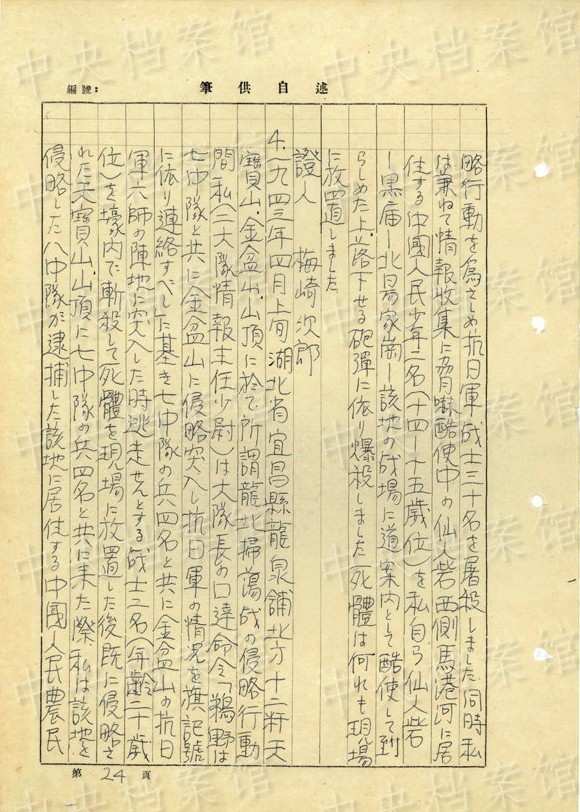 編號:
筆供自述
略行動を為さしめ抗日軍战士三十名を屠殺しました同時私
は兼ねて情報收集に脅嚇酷使中の仙人砦西側馬巷河に居
住する中國人民少年二名(十四ー十五歲位)を私自ら仙人砦
ー黒庙ー北易家崗ー該地の战場に道案内として酷使して到
らしめた上落下せる砲彈に依り爆殺しました死體は何れも現場
に放置しました
證人 梅崎次郎
4.一九四三年四月上旬湖北省宜昌縣龍泉舗北方十二粁天
寶山、金盆山山頂に於て所謂龍北掃蕩战の侵略行動
間私(二大隊情報主任少尉)は大隊長の口達命令「鵜野は
七中隊と共に金盆山に侵略突入し抗日軍の情況を旗記號
に依り連絡すべし」に基き七中隊の兵四名と共に金盆山の抗日
軍六师の陣地に突入した時逃走せんとする战士二名(年齡二十歲
位)を壕内で斬殺して死體を現場に放置した後既に侵略さ
れた天寶山山頂に七中隊の兵四名と共に来た際私は該地を
侵略した八中隊が逮捕した該地に居住する中國人民農民
第24頁
中央档案馆